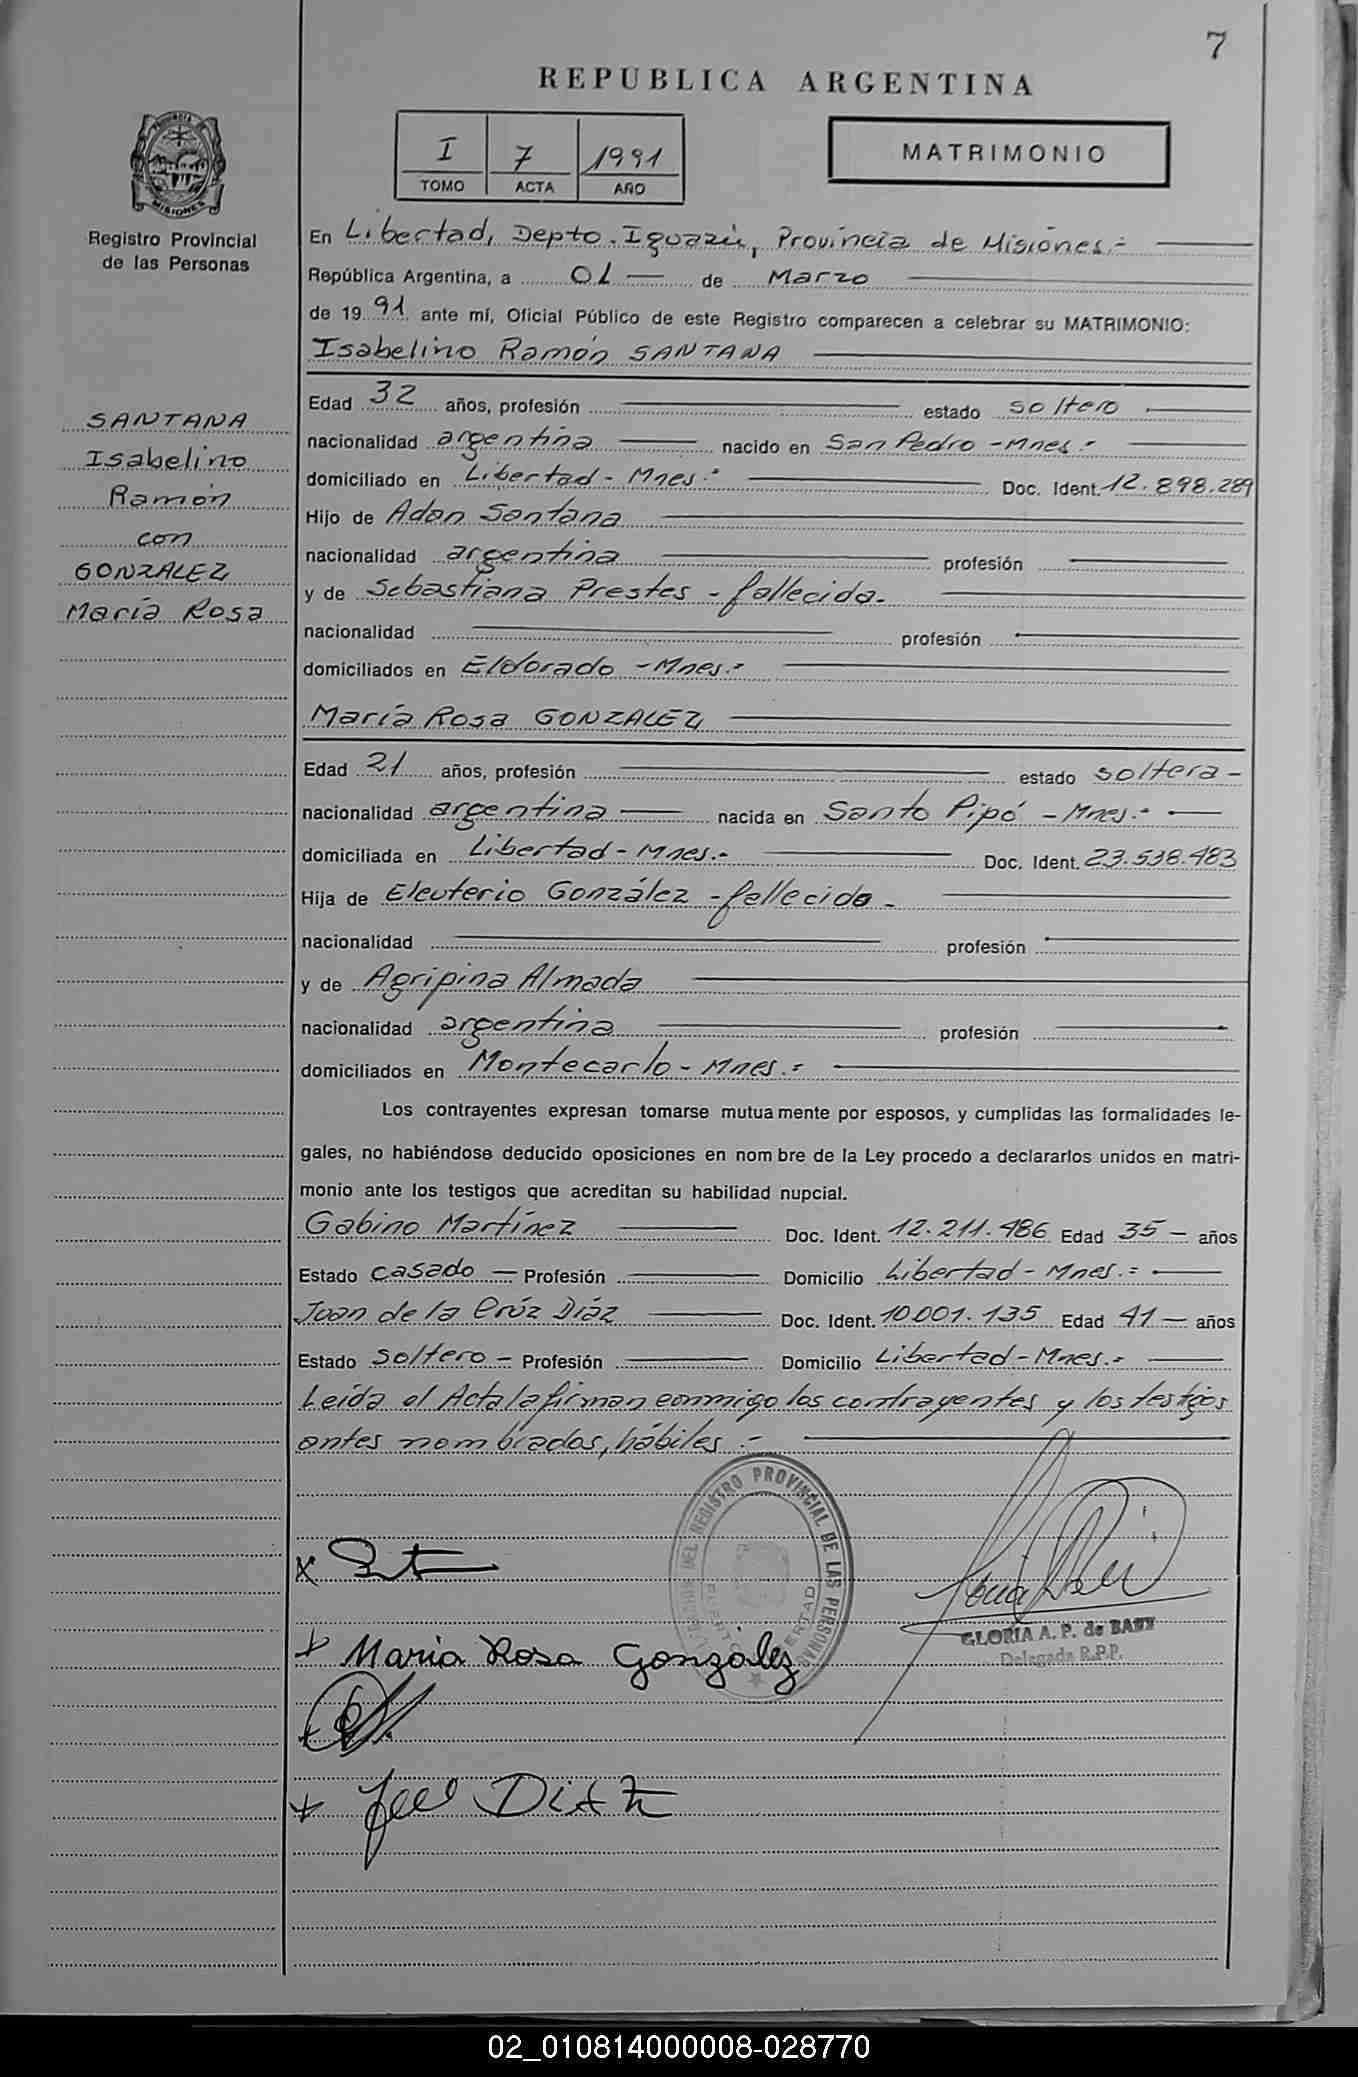 7
REPUBLICA ARGENTINA
I 7 1991
TOMO ACTA AÑO
MATRIMONIO
PROVINCIA DE MISIONES
Registro Provincial
de las Personas
En Libertad, Depto. Iguazú, Provincia de Misiones.-
República Argentina, a 01 de Marzo
de 1991 ante mí, Oficial Público de este Registro comparecen a celebrar su MATRIMONIO:
Isabelino Ramón SANTANA
SANTANA
Isabelino
Ramón
con
GONZALEZ
María Rosa
Edad 32 años, profesión estado soltero
nacionalidad argentina nacido en San Pedro - Mnes.-
domiciliado en Libertad - Mnes.- Doc. Ident. 12.898.289
Hijo de Adan Santana
nacionalidad argentina profesión
y de Sebastiana Prestes - fallecida.
nacionalidad profesión
domiciliados en Eldorado - Mnes.-
María Rosa GONZALEZ
Edad 21 años, profesión estado soltera -
nacionalidad argentina nacida en Santo Pipó - Mnes.-
domiciliada en Libertad - Mnes.- Doc. Ident. 23.538.483
Hija de Eleuterio González - fallecido -
nacionalidad profesión
y de Agripina Almada
nacionalidad argentina profesión
domiciliados en Montecarlo - Mnes.-
Los contrayentes expresan tomarse mutuamente por esposos, y cumplidas las formalidades le-
gales, no habiéndose deducido oposiciones en nom bre de la Ley procedo a declararlos unidos en matri-
monio ante los testigos que acreditan su habilidad nupcial.
Gabino Martínez Doc. Ident. 12.211.486 Edad 35 - años
Estado casado - Profesión Domicilio Libertad - Mnes.-
Juan de la Crúz Díaz Doc. Ident. 10.001.135 Edad 41 - años
Estado soltero - Profesión Domicilio Libertad - Mnes.-
Leída el Acta la firman conmigo los contrayentes y los testigos
antes nombrados, hábiles.-
DEL REGISTRO PROVINCIAL DE LAS PERSONAS
PUERTO LIBERTAD
GLORIA A. P. de
Delegada R.P.P.
x
+ María Rosa González
+
+ DIAZ
02_010814000008-028770